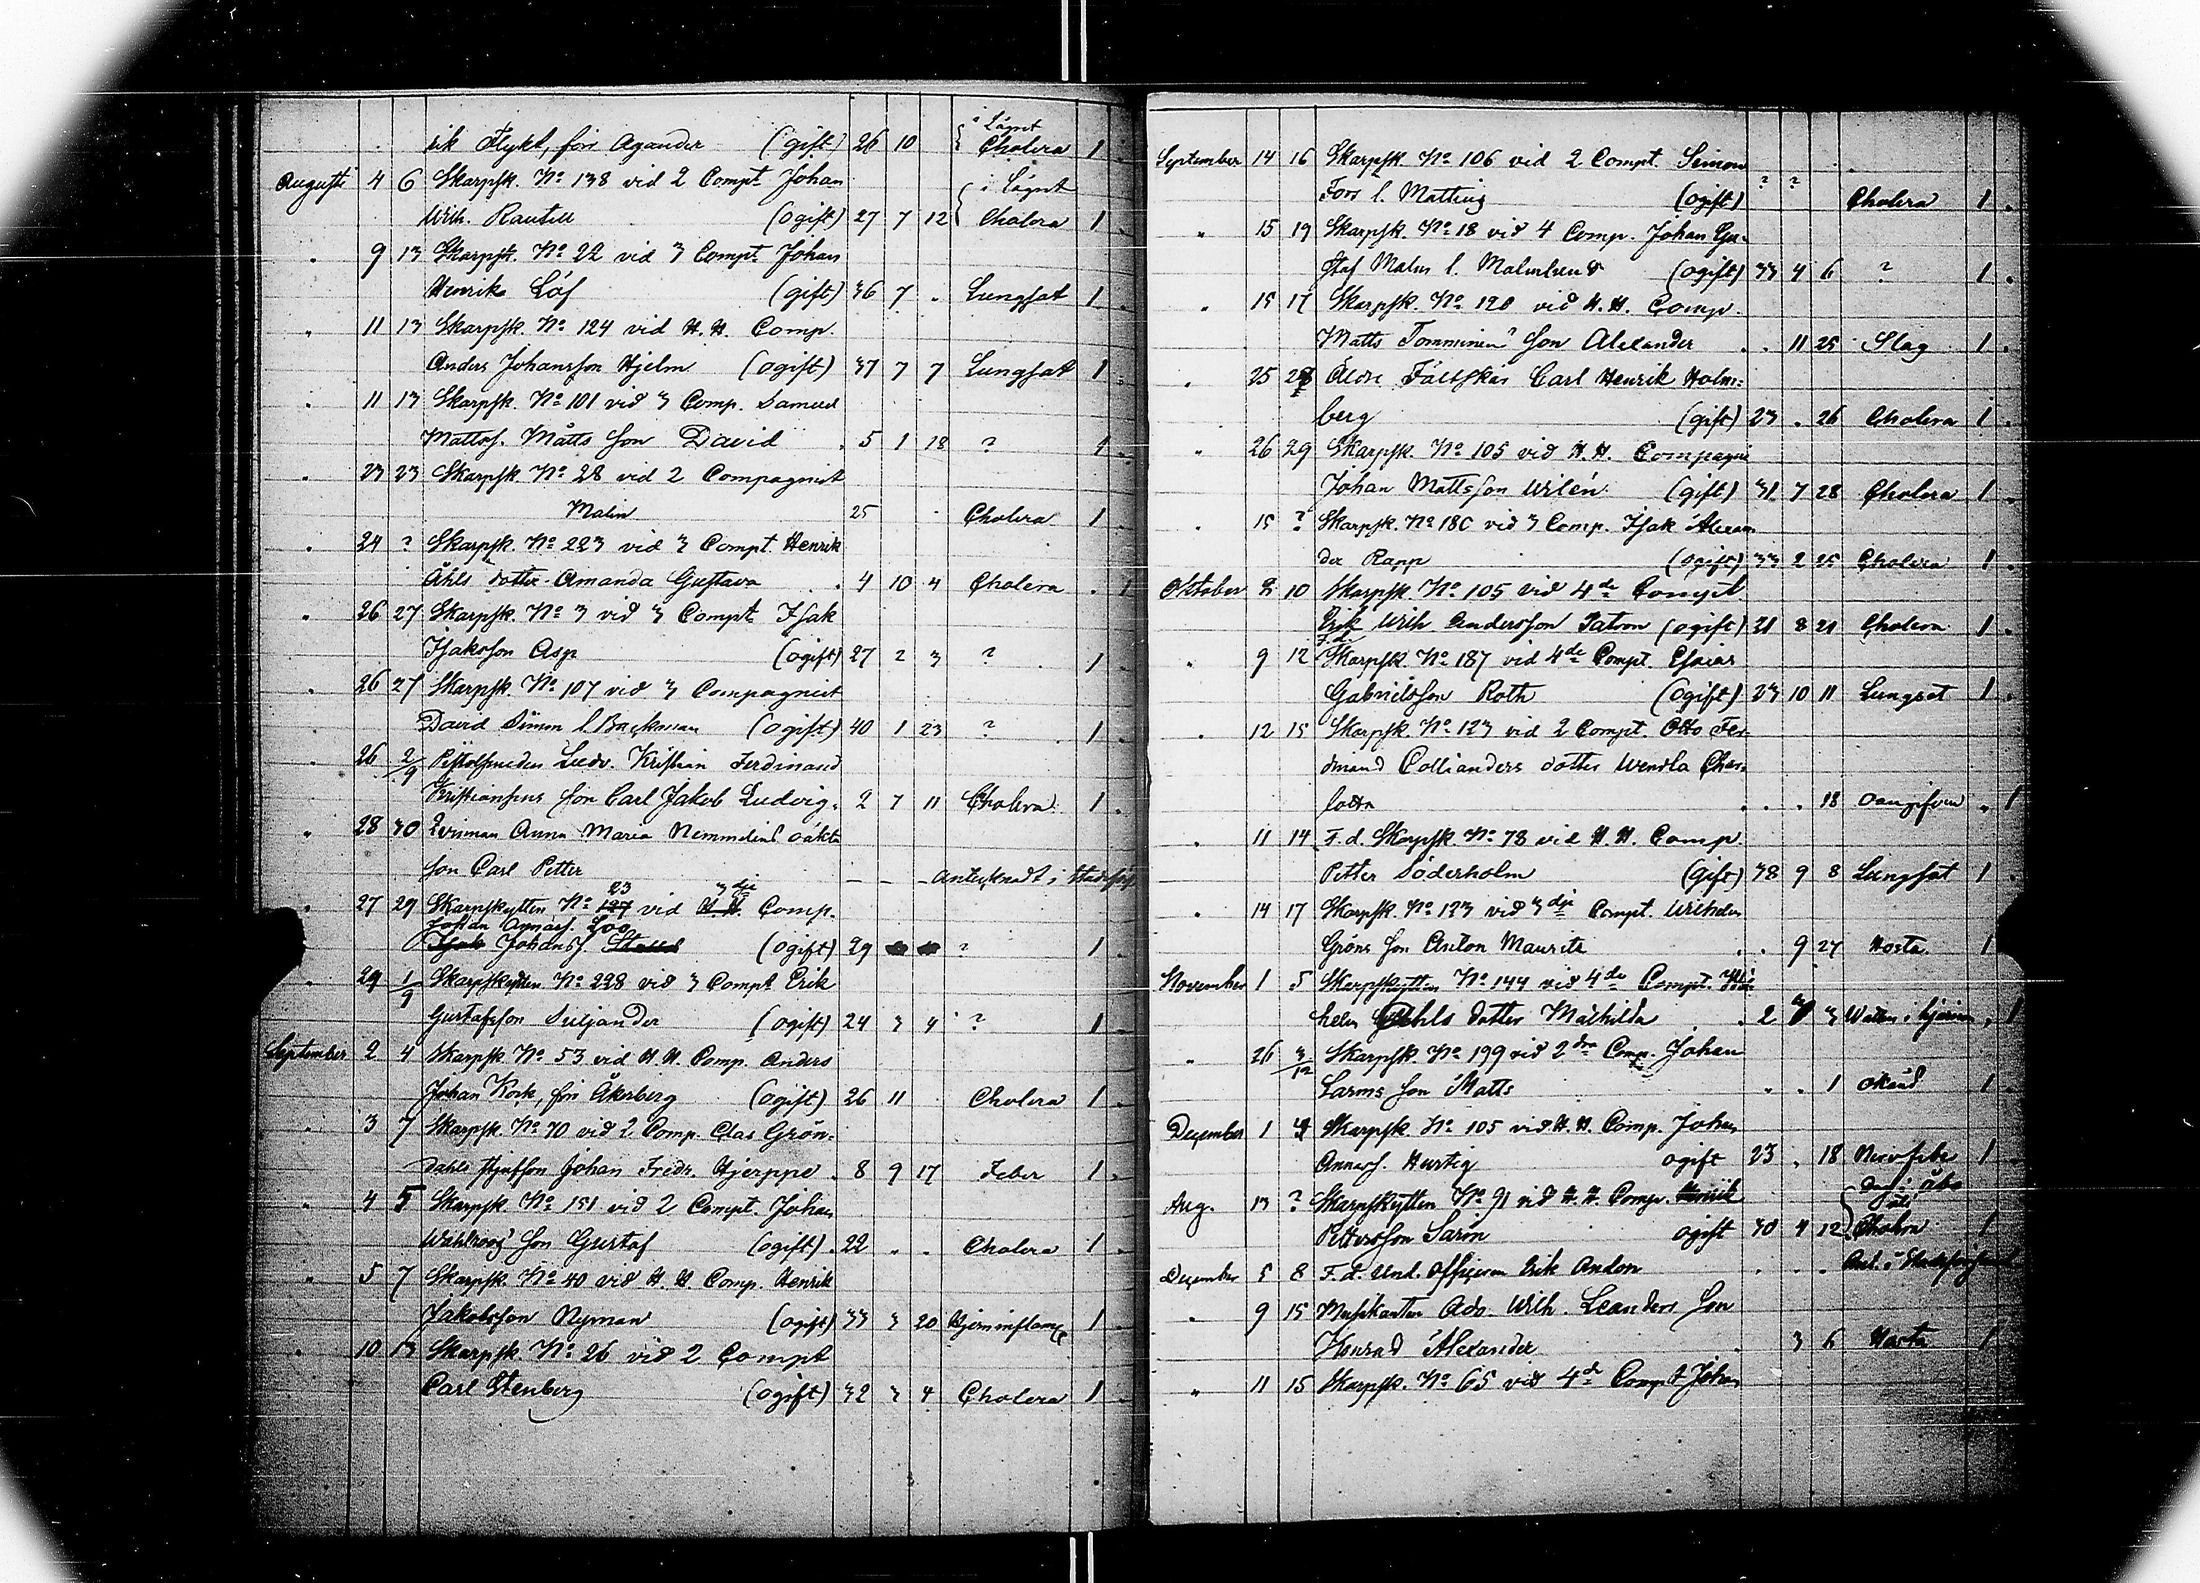 rik Flykt, förr Agander (gift) 26 10 i Lägret
Cholera 1
Augusti 4 6 Skarpsk. No 138 vid 2 Compt Johan i Lägret
Wilh. Rautell (ogift) 27 7 12 Cholera 1
" 9 13 Skarpsk. No 22 vid 3 Compt. Johan
Henrik Löf (gift) 36 7 . Lungsot 1
" 11 13 Skarpsk. No 124 vid H. H. Comp.
Anders Johansson Hjelm (ogift) 37 7 7 Lungsot 1
" 11 13 Skarpsk. No 101 vid 3 Comp. Samuel
Mattss. Mätts son David . 5 1 18 ? 1
" 23 23 Skarpsk. No 28 vid 2 Compagniet
Malin 25 . Cholera 1
" 24 ? Skarpsk. No 223 vid 3 Compt. Henrik
Åhls dotter Amanda Gustava . 4 10 4 Cholera . 1
" 26 27 Skarpsk. No 3 vid 3 Compt. Isak
Isaksson Asp (ogift) 27 2 3 ? 1
" 26 27 Skarpsk. No 107 vid 3 Compagniet
David Simon l. Backman (ogift) 40 1 23 ? 1
" 26 2/9 Pistolsmeden Ludv. Kristian Ferdinand
Kristiansens son Carl Jakob Ludvig. 2 7 11 Cholera 1
" 28 30 Qvinnan Anna Maria Nemmelins oäkta
son Carl Petter — — — Antecknadt i Stadsförs.
" 27 29 Skarpskytten No 127 23 vid H H. 3dje Comp.
Johan Annass. Loo
Isak Johanss. (ogift) 29 ? 1
" 29 1/9 Skarpskytten No 228 vid 3 Compt Erik
Gustafsson Siljander (ogift) 24 3 4 ? 1
September 2 4 Skarpsk No 53 vid H. H. Comp. Anders
Johan Kock, förr Åkerberg (ogift) 26 11 Cholera 1
" 3 7 Skarpsk. No 70 vid 2 Comp. Clas Grön-
dahls styfson Johan Fredr. Hjerppe . 8 9 17 Feber 1
" 4 5 Skarpsk. No 151 vid 2 Compt. Johan
Wahlroos' son Gustaf (ogift) . 22 . . Cholera 1
" 5 7 Skarpsk. No 40 vid H. H Comp. Henrik
Jakobsson Nyman (ogift) 33 3 20 Hjerninflam 1
" 10 13 Skarpsk. No 26 vid 2 Compt
Carl Stenberg (ogift) 32 3 4 Cholera 1
September 14 16 Skarpsk. No 106 vid 2 Compt. Simon
Fors l. Matting (ogift) ? ? Cholera 1
" 15 19 Skarpsk. No 18 vid 4 Comp. Johan Gu-
staf Malm l. Malmlund (ogift) 33 4 6 ? 1
" 15 17 Skarpsk. No 120 vid H. H. Comp.
Matts Tomminen? son Alexander . . 11 25 Slag 1
" 25 28 Äldre Fältskär Carl Henrik Holm-
berg (gift) 23 . 26 Cholera 1
" 26 29 Skarpsk. No 105 vid H. H. Compagni
Johan Mattsson Wilén (gift) 31 7 28 Cholera 1
" 15 ? Skarpsk. No 180 vid 3 Comp. Isak Alexan
der Rapp (ogift) 33 2 25 Cholera 1
Oktober 2 10 Skarpsk. No 105 vid 4de Compt.
Erik Wilh. Andersson Patron (ogift) 21 8 21 Cholera 1
" 9 12 F.d. Skarpsk. No 187 vid 4de Compt. Esaias
Gabrielsson Roth (ogift) 23 10 11 Lungsot 1
" 12 15 Skarpsk. No 123 vid 2 Compt. Otto Fer-
dinand Collianders dotter Wendla Char-
lotta . . . 18 1
" 11 14 F. d. Skarpsk. No 78 vid H. H. Comp.
Petter Söderholm (gift) 38 9 8 Lungsot 1
" 14 17 Skarpsk. No 123 vid 3dje Compt. Wilhelm
Gröns son Anton Maurits . . 9 27 Hosta 1
November 1 5 Skarpskytten No 144 vid 4de Compt. Wil
helm dotter Mathilda . 2 3 Watten i hjernan . 1
" 26 3/12 Skarpsk. No 199 vid 2dra Comp. Johan
Larms son Matts . . 1 Okänd 1
December 1 4 Skarpsk. No 105 vid H. H. Comp. Johan
Annass. Hurtig ogift 23 . 18 Nervfeber 1
Aug. 13 ? Skarpskytten No 91 vid H. H. Comp. Henrik
Pettersson Sarén ogift 30 4 12 Cholera 1
December 5 8 F. d. Und. Officeren Erik Andon . . .
" 9 15 Musikanten Adv. Wilh. Leanders son
Konrad Alexander 3 6 Hosta 1
" 11 15 Skarpsk. No 65 vid 4de Compt Johan